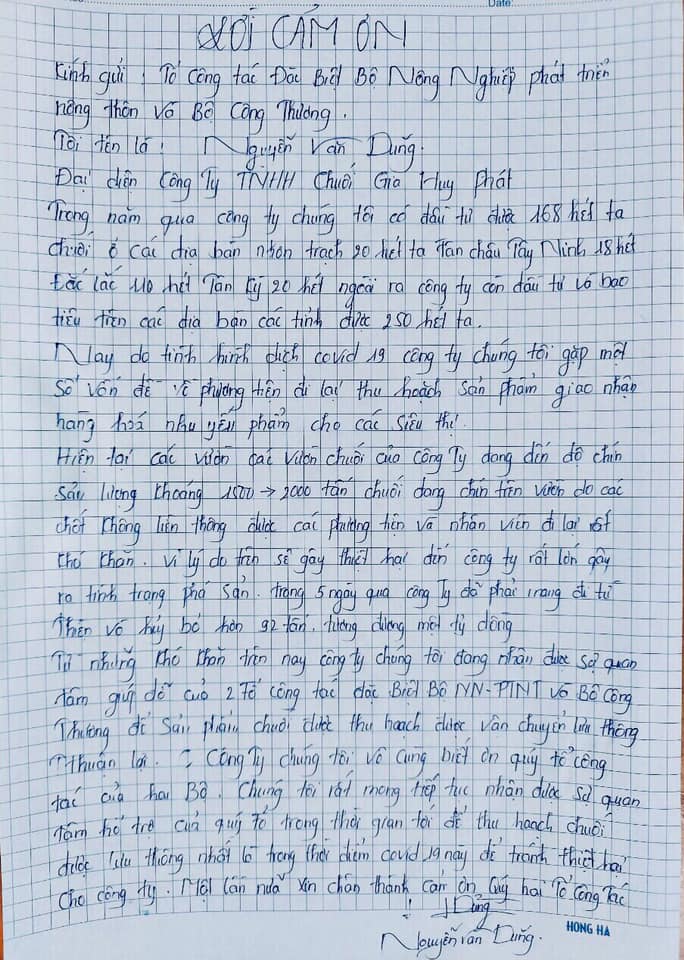 Date:
LỜI CẢM ƠN
Kính gửi : Tổ Công tác Đặc Biệt Bộ Nông Nghiệp phát triển
nông thôn và Bộ Công Thương.
Tôi tên là : Nguyễn Văn Dũng.
Đại diện Công Ty TNHH Chuối Gia Huy Phát
Trong năm qua công ty chúng tôi có đầu tư được 168 hét ta
chuối ở các địa bàn nhơn trạch 20 hét ta Tân châu Tây Ninh 18 hét
Đắc lắc 110 hét Tân Kỳ 20 hét ngoài ra công ty còn đầu tư và bao
tiêu trên các địa bàn các tỉnh được 250 hét ta.
Nay do tình hình dịch covid 19 công ty chúng tôi gặp một
số vấn đề về phương tiện đi lại thu hoạch sản phẩm giao nhận
hàng hoá nhu yếu phẩm cho các siêu thị.
Hiện tại các vườn các vườn chuối của Công Ty đang đến độ chín
sản lượng khoảng 1500 → 2000 tấn chuối đang chín trên vườn do các
chốt không liên thông được các phương tiện và nhân viên đi lại rất
khó khăn. vì lý do trên sẽ gây thiệt hại đến công ty rất lớn gây
ra tình trạng phá sản. trong 5 ngày qua công Ty đã phải mang đi từ
thiện và hủy bỏ hơn 92 tấn. tương đương một tỷ đồng
Từ những khó khăn trên nay công ty chúng tôi đang nhận được sự quan
tâm giúp đỡ của 2 Tổ công tác đặc Biệt Bộ NN-PTNT và Bộ Công
Thương để sản phẩm chuối được thu hoạch được vận chuyển lưu thông
Thuận lợi. : Công Ty chúng tôi vô cùng biết ơn quý tổ công
tác của hai Bộ. Chúng tôi rất mong tiếp tục nhận được sự quan
tâm hổ trợ của quý Tổ trong thời gian tới để thu hoạch chuối
được lưu thông nhất là trong thời điểm covid 19 này để tránh thiệt hại
cho công ty. Một lần nữa xin chân thành cảm ơn Quý hai Tổ Công Tác
! Dũng
Nguyễn văn Dũng.
HONG HA